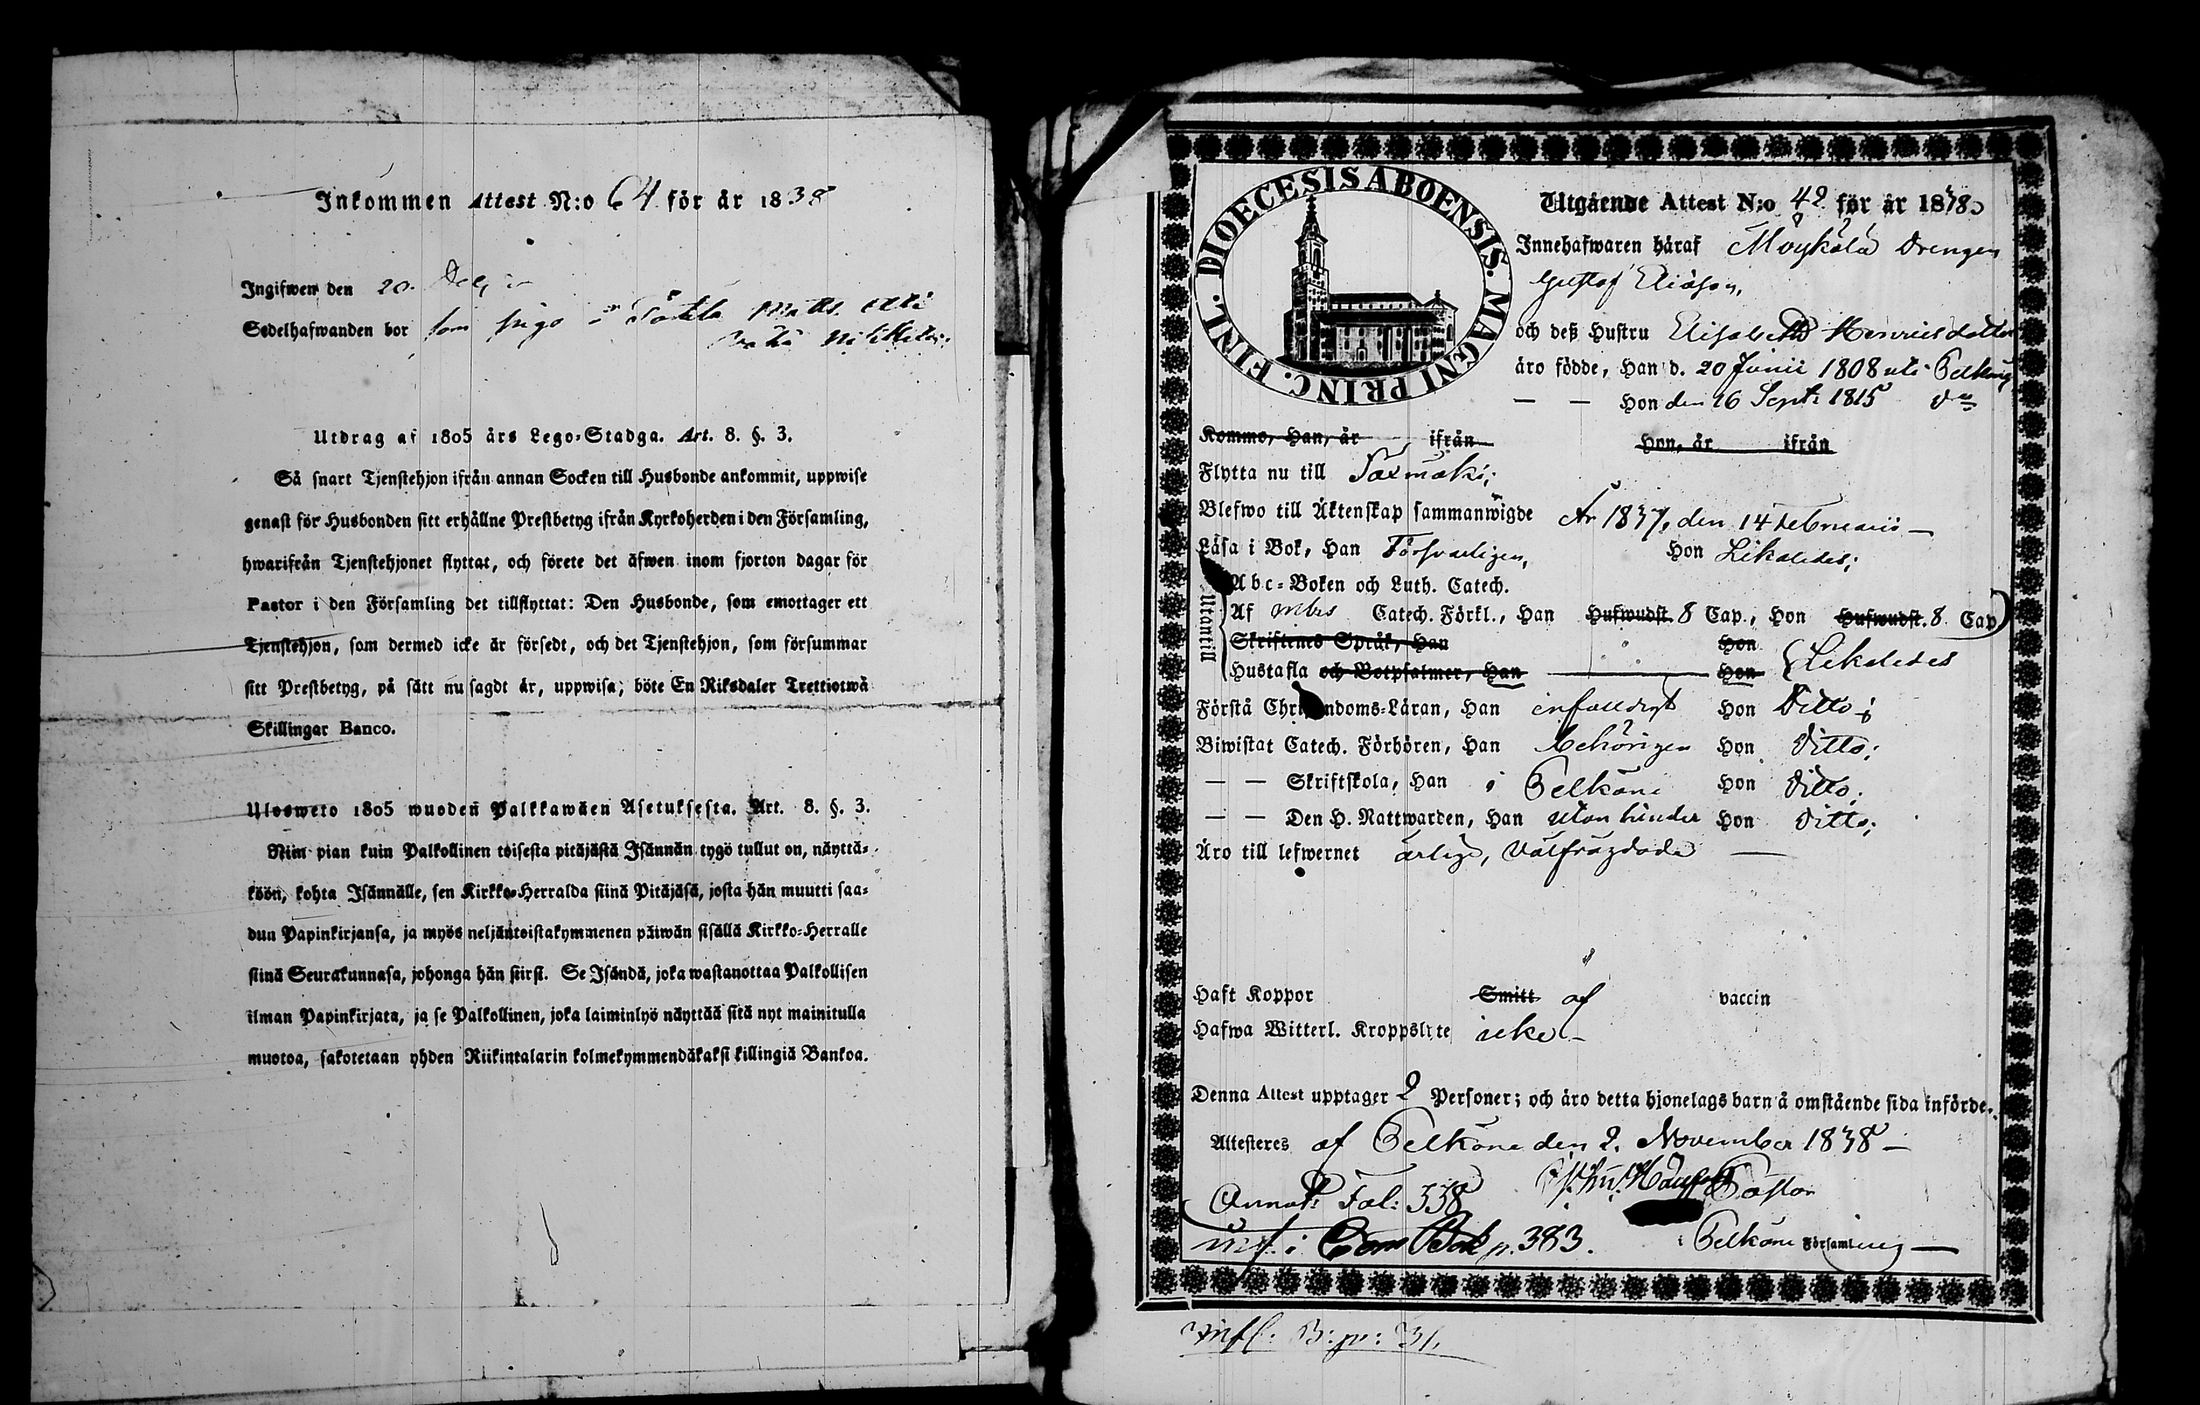 Inkommen Attest N:o 64 för år 1838
Ingifwen den 20.
Sedelhafwanden bor som
Utdrag af 1805 års Lego-Stadga. Art. 8. §. 3.
Så snart Tjenstehjon ifrån annan Socken till Husbonde ankommit, uppwise
genast för Husbonden sitt erhållne Prestbetyg ifrån Kyrkoherden i den Församling,
hwarifrån Tjenstehjonet flyttat, och förete det äfwen inom fjorton dagar för
Pastor i den Församling det tillflyttat: Den Husbonde, som emottager ett
Tjenstehjon, som dermed icke är försedt, och det Tjenstehjon, som försummar
sitt Prestbetyg, på sätt nu sagdt är, uppwisa, böte En Riksdaler Trettiotwå
Skillingar Banco.
Ulosweto 1805 wuoden Palkkawäen Asetuksesta. Art. 8. §. 3.
Niin pian kuin Palkollinen toisesta pitäjästä Isännän tygö tullut on, näyttä-
köön, kohta Isännälle, sen Kirkko-Herralda siinä Pitäjäsä, josta hän muutti saa-
dun Papinkirjansa, ja myös neljäntoistakymmenen päiwän sisällä Kirkko-Herralle
siinä Seurakunnasa, johonga hän siirsi. Se Isändä, joka wastanottaa Palkollisen
ilman Papinkirjata, ja se Palkollinen, joka laiminlyö näyttää sitä nyt mainitulla
muotoa, sakotetaan yhden Riikintalarin kolmekymmendäkaksi killingiä Bankoa.
DIOECESIS ABOENSIS. MAGNI PRINC. FINL.
Utgående Attest N:o 42 för år 1838
Innehafwaren häraf Möykölä Drengen
Gustaf Eliasson,
och deß Hustru Elisabeth Henricsdotter
äro födde, Han d. 20 Junii 1808 uti Pelkäne
— — Hon den 16 Sept: 1815 do
Kommo, Han, år ifrån Hon, år ifrån
Flytta nu till Saxmäki;
Blefwo till Äktenskap sammanwigde År 1837, den 14 Februarii —
Läsa i Bok, Han Försvarligen, Hon Likaledes;
Utantill
Abc-Boken och Luth. Catech.
Af Catech. Förkl., Han Hufwudst. 8 Cap., Hon Hufwudst. 8 Cap
Skriftenes Språk, Han Hon
Hustafla och Botpsalmer, Han Hon Likaledes
Förstå Christendoms-Läran, Han enfalldigt Hon Ditto;
Biwistat Catech. Förhören, Han behörigen Hon Ditto;
— — Skriftskola, Han i Pelkäne Hon Ditto;
— — Den H. Nattwarden, Han utan hinder Hon Ditto;
Äro till lefwernet ärlige, välfrägdade —
Haft Koppor Smitt af vaccin
Hafwa Witterl. Kroppslyte icke —
Denna Attest upptager 2 Personer; och äro detta hjonelags barn å omstående sida införde.
Attesteres af Pelkäne den 2. November 1838 —
Annot: Fol: 338
Pastor
inf. i Com Bok p. 383.
i Pelkäne Församling —
infl. B: p: 31.